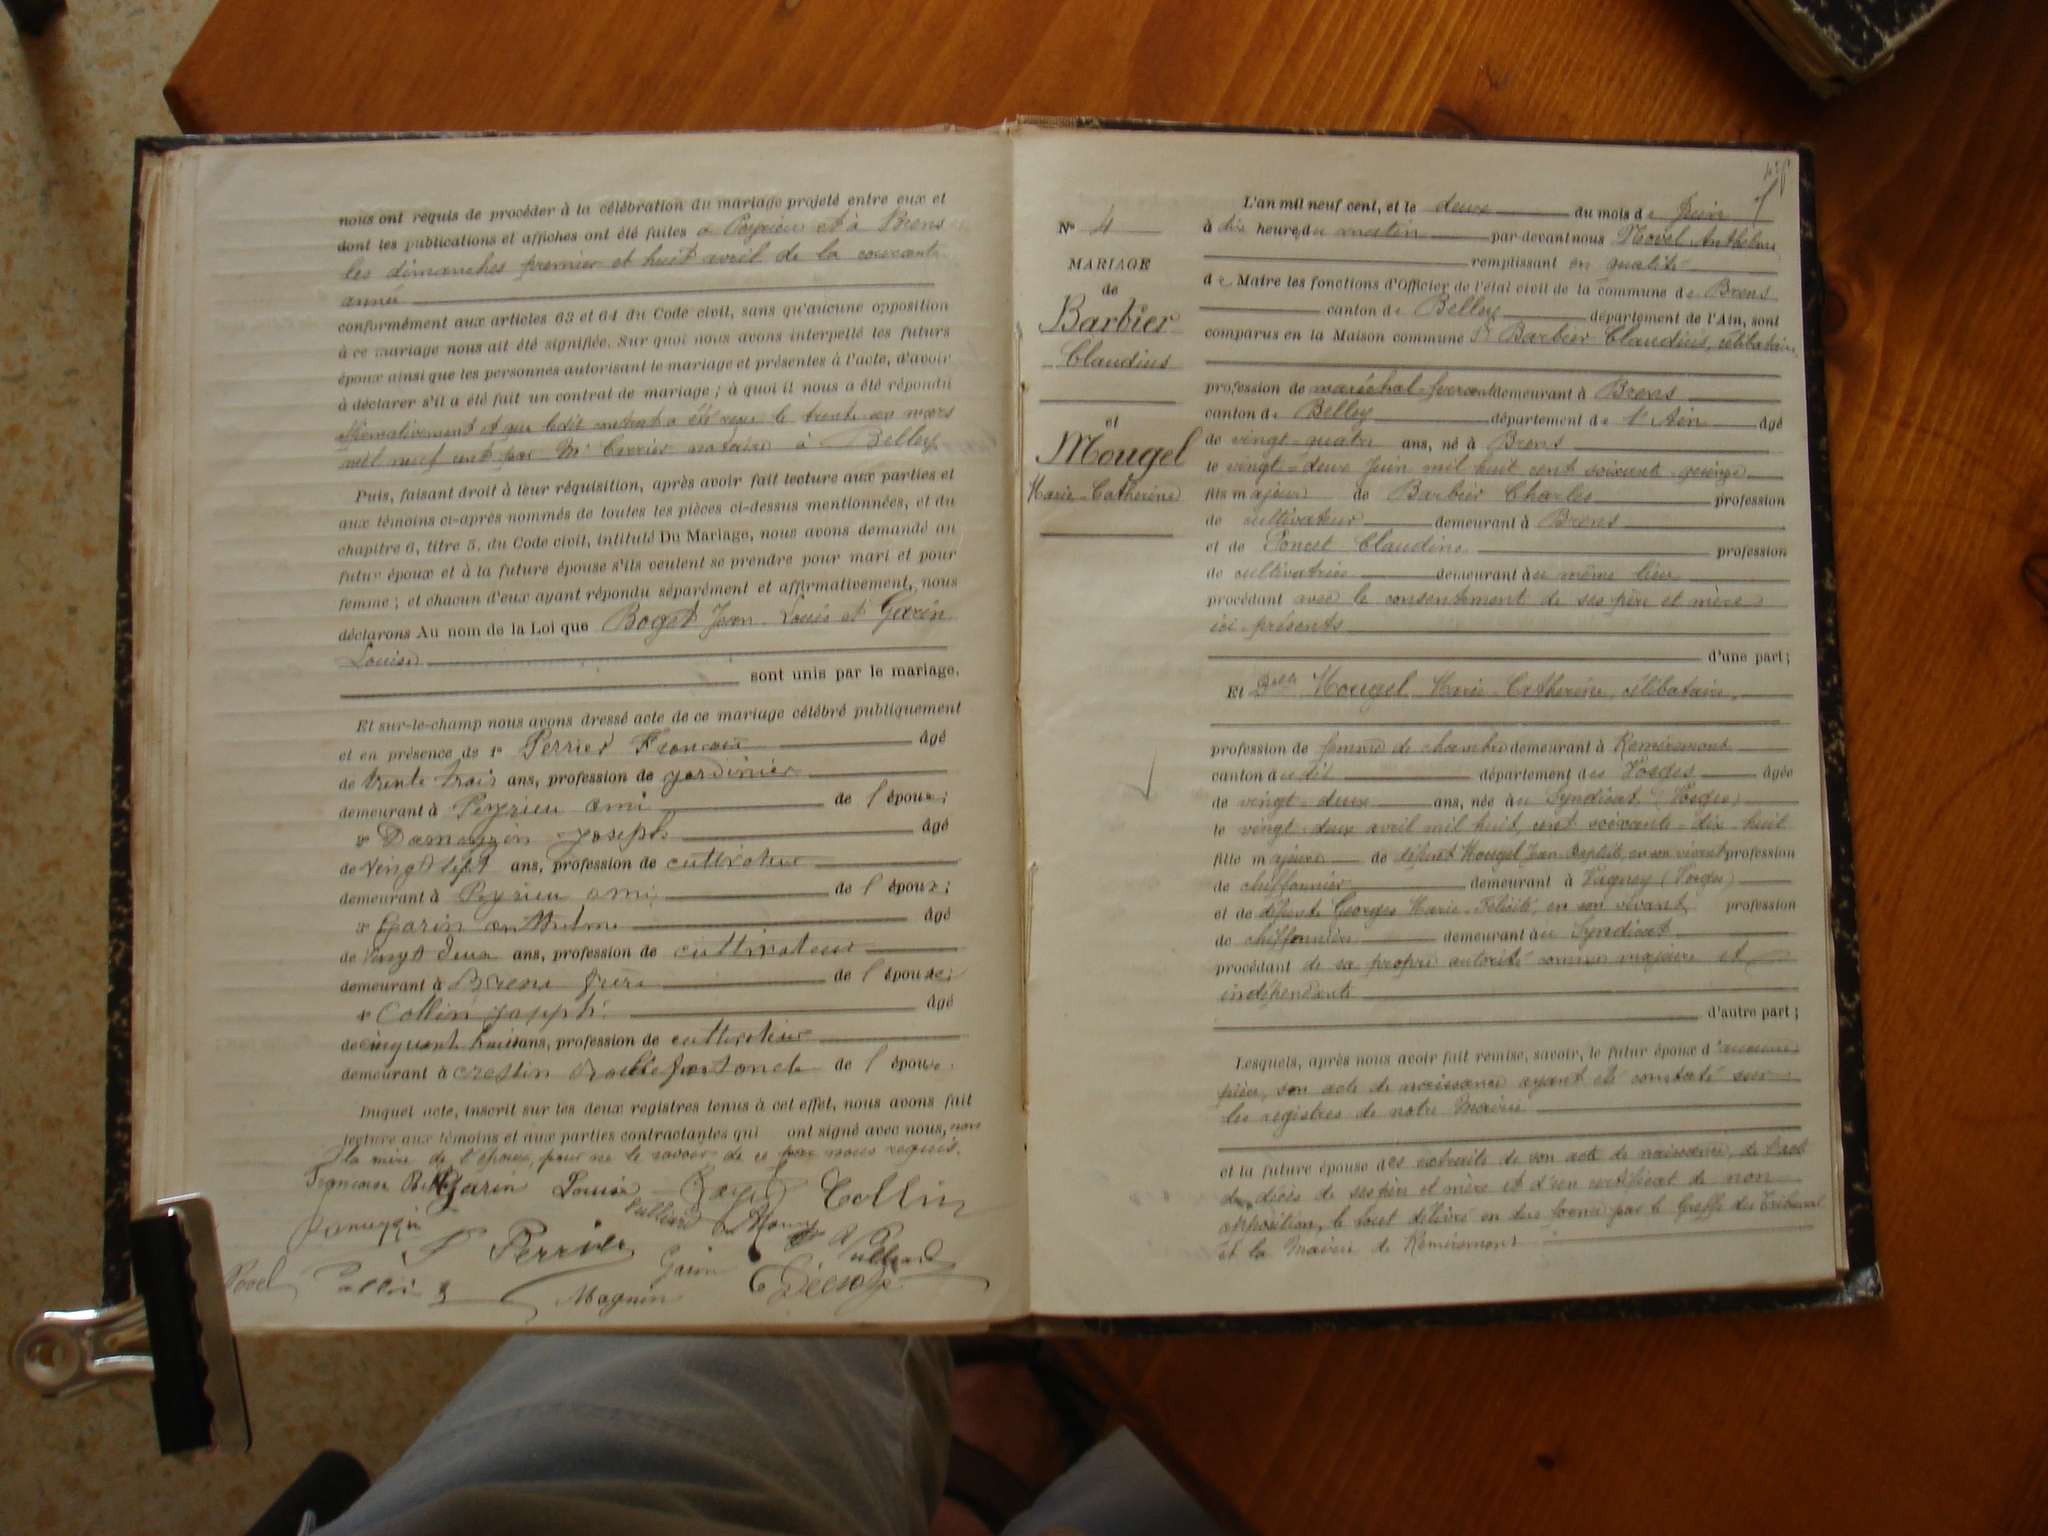 nous ont requis de procéder à la célébration du mariage projeté entre eux et
dont les publications et affiches ont été faites à Peyrieu et à Brens
les dimanches premier et huit avril de la courante
année
conformément aux articles 63 et 64 du Code civil, sans qu'aucune opposition
à ce mariage nous ait été signifiée. Sur quoi nous avons interpellé les futurs
époux ainsi que les personnes autorisant le mariage et présentes à l'acte, d'avoir
à déclarer s'il a été fait un contrat de mariage ; à quoi il nous a été répondu
affirmativement et que ledit contrat a été reçu le trente un mars
mil neuf cent par Me notaire à Belley
Puis, faisant droit à leur réquisition, après avoir fait lecture aux parties et
aux témoins ci-après nommés de toutes les pièces ci-dessus mentionnées, et du
chapitre 6, titre 5, du Code civil, intitulé Du Mariage, nous avons demandé au
futur époux et à la future épouse s'ils veulent se prendre pour mari et pour
femme ; et chacun d'eux ayant répondu séparément et affirmativement, nous
déclarons Au nom de la Loi que Boget Jean-Louis et Garin
Louise
sont unis par le mariage.
Et sur-le-champ nous avons dressé acte de ce mariage célébré publiquement
et en présence de 1° Perrier François âgé
de trente trois ans, profession de jardinier
demeurant à Peyrieu ami de l'époux;
2° Damezin Joseph âgé
de vingt sept ans, profession de cultivateur
demeurant à Peyrieu ami de l'époux;
3° Garin Anthelme âgé
de vingt deux ans, profession de cultivateur
demeurant à Brens frère de l'épouse;
4° Collin Joseph âgé
de cinquante huit ans, profession de cultivateur
demeurant à de l'épouse.
Duquel acte, inscrit sur les deux registres tenus à cet effet, nous avons fait
lecture aux témoins et aux parties contractantes qui ont signé avec nous, non
la mère de l'époux, pour ne le savoir de ce par nous requis.
Garin Louise Boget Collin
F Perrier Garin
Novel Magnin
N° 4
MARIAGE
de
Barbier
Claudius
et
Mougel
Marie-Catherine
L'an mil neuf cent, et le deux du mois de Juin
à dix heures du matin par-devant nous Novel Anthelme
remplissant en qualité
de Maire les fonctions d'Officier de l'état civil de la commune de Brens
canton de Belley département de l'Ain, sont
comparus en la Maison commune Sr Barbier Claudius, célibataire,
profession de maréchal-ferrant demeurant à Brens
canton de Belley département de l'Ain âgé
de vingt-quatre ans, né à Brens
le vingt-deux Juin mil huit cent soixante-quinze
fils majeur de Barbier Charles profession
de cultivateur demeurant à Brens
et de Poncet Claudine profession
de cultivatrice demeurant au même lieu
procédant avec le consentement de ses père et mère
ici présents
d'une part;
Et Delle Mougel Marie-Catherine, célibataire,
profession de femme de chambre demeurant à Remiremont
canton dudit département des Vosges âgée
de vingt-deux ans, née au Syndicat (Vosges)
le vingt-deux avril mil huit cent soixante-dix-huit
fille majeure de défunt Mougel Jean Baptiste, en son vivant profession
de chiffonnier demeurant à Vagney (Vosges)
et de défunte Georges Marie-Félicité, en son vivant profession
de chiffonnière demeurant au Syndicat
procédant de sa propre autorité comme majeure et
indépendante
d'autre part;
Lesquels, après nous avoir fait remise, savoir, le futur époux d'aucune
pièce, son acte de naissance ayant été constaté sur
les registres de notre Mairie
et la future épouse des extraits de son acte de naissance, de l'acte
de décès de ses père et mère et d'un certificat de non
opposition, le tout délivré en due forme par le Greffe du Tribunal
et la Mairie de Remiremont